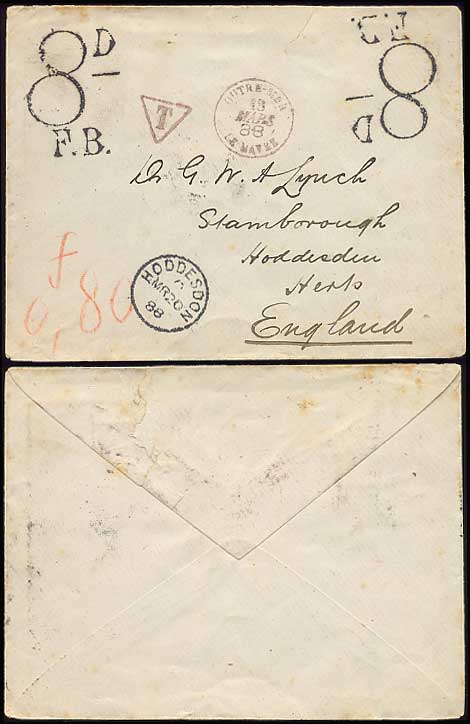 8D
F.B.
T
OUTRE-MER
13
MARS
88
LE HAVRE
8D
F.B.
Dr G. W. A Lynch
Stamborough
Hoddesden
Herts
England
f
0,80
HODDESDON
A
MR 20
88